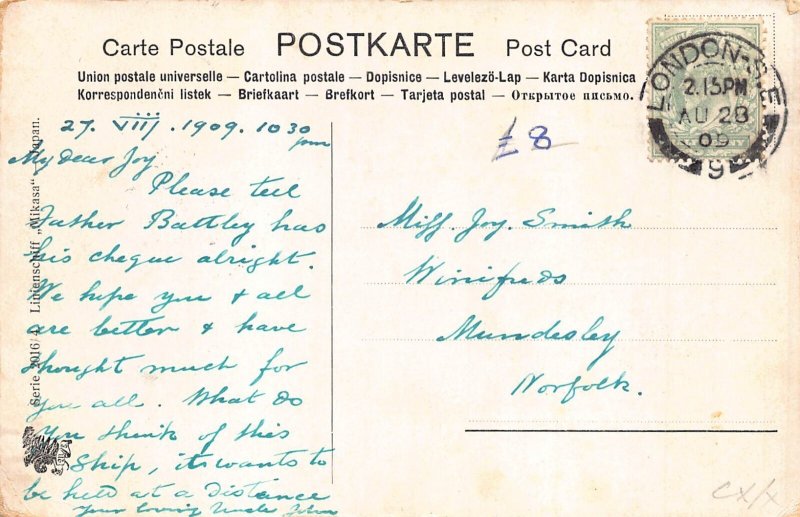 Carte Postale POSTKARTE Post Card
Union postale universelle — Cartolina postale — Dopisnice — Levelező-Lap — Karta Dopisnica
Korrespondenční listek — Briefkaart — Brefkort — Tarjeta postal — Открытое письмо.
LONDON·S.E
2.15PM
AU 28
09
9
27. VIII. 1909. 10 30
pm
£8
My dear Joy
Please tell
Father Battley has
his cheque alright.
We hope you & all
are better & have
thought much for
you all. What do
you think of this
ship, its wants to
be held at a distance
Your loving Uncle John
Miss. Joy. Smith
Winifreds
Mundesley
Norfolk.
Serie 2016/4. Linienschiff „Mikasa“ Japan.